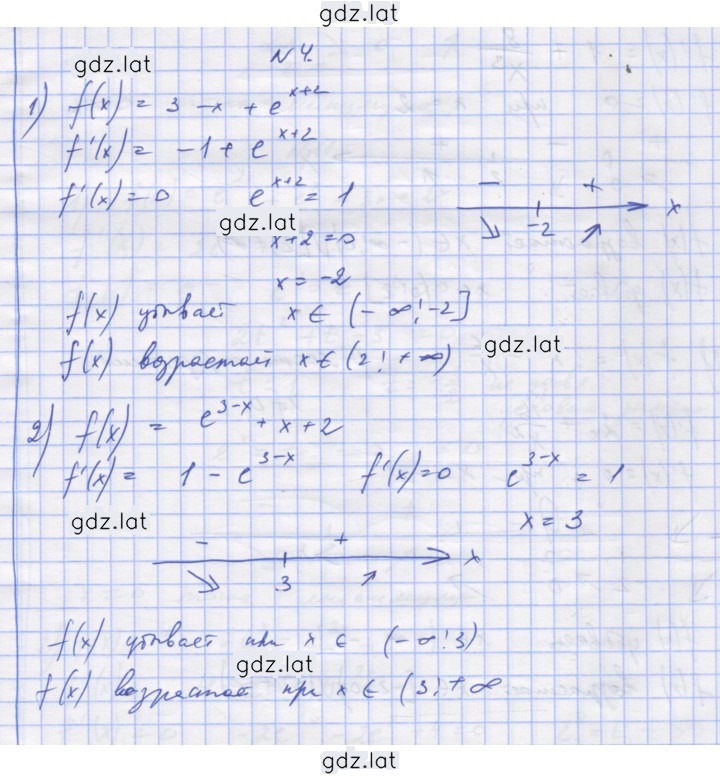 gdz.lat
gdz.lat
N 4.
1) f(x) = 3 - x + e^{x+2}
f'(x) = -1 + e^{x+2}
f'(x) = 0 e^{x+2} = 1
- + x
-2
gdz.lat
x+2 = 0
x = -2
f(x) убывает x ∈ (-∞; -2]
f(x) возрастает x ∈ (2; +∞)
gdz.lat
2) f(x) = e^{3-x} + x + 2
f'(x) = 1 - e^{3-x} f'(x) = 0 e^{3-x} = 1
gdz.lat
x = 3
- + x
3
f(x) убывает при x ∈ (-∞; 3)
gdz.lat
f(x) возрастает при x ∈ (3; +∞
gdz.lat